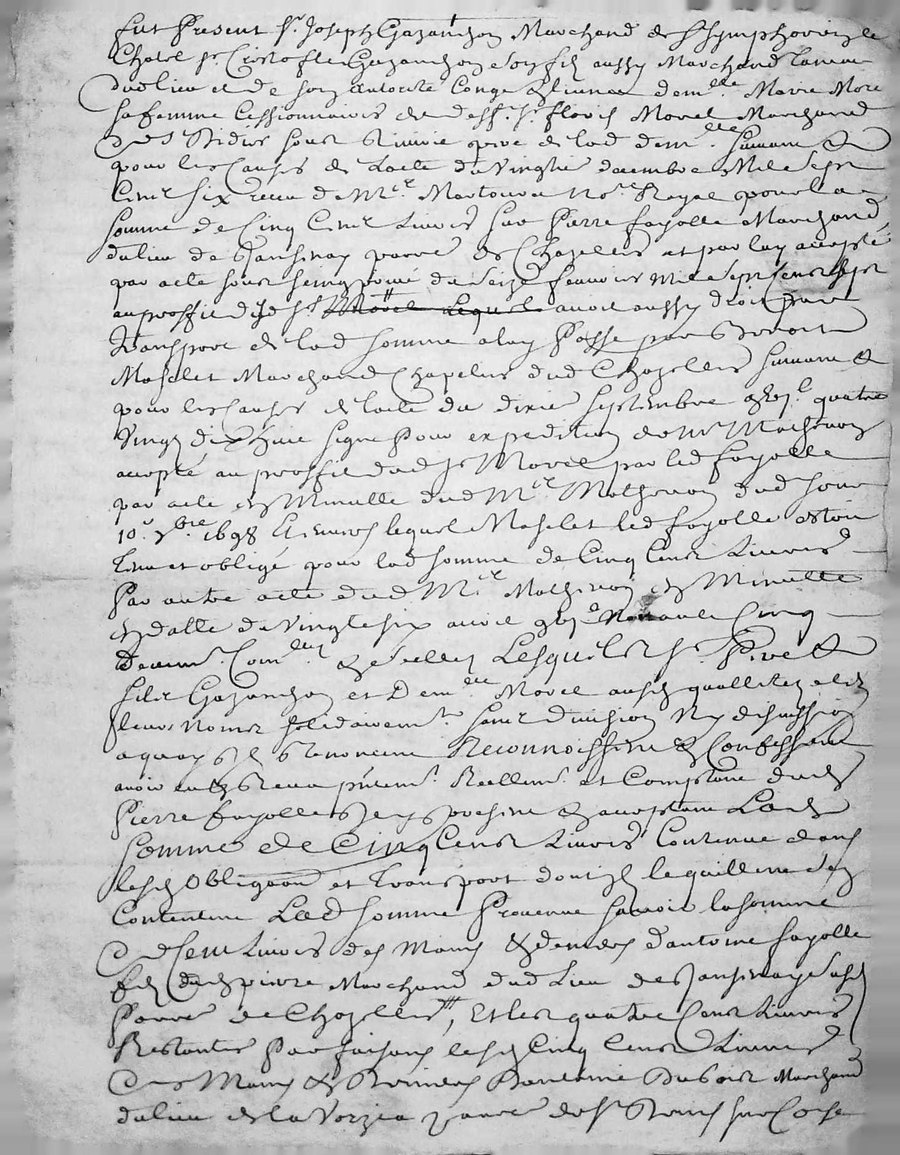 Fut Present Sr. Joseph Gazanchon Marchand de St Symphorien le
Chatel Sr. Cristofle Gazanchon son fils aussy Marchand
dudlieu et de son authorite Conge & licence demlle Marie More
sa femme Cessionnaires de defft Sr floris Morel Marchand
St Didier sous Riverie pere de lad demlle suivant &
pour les causes de lacte du Vingtie decembre Mil sept
Cent six receu de Mer Notre Royal pour la
somme de Cinq Cent Livres sur Pierre fayolle Marchand
dulieu de parre de Chazelles et par luy accepté
par acte sous seing privé du seize feuvrier Mil sept Cent sept
au proffit dud Sr Morel Lequel avoit aussy droit par
transport de lad somme a luy Passe par Benoit
Maselet Marchand Chapelier dud Chazelles suivant &
pour les causes de lacte du dixie septembre quatre
Vingt dix huit signe Pour expedition de Me Mathevon
accepté au proffit dud Sr Morel par led fayolle
par acte en Minutte dud Mer Mathevon dud jour
10e 7bre 1698 Et envers lequel Maselet led fayolle estoit
tenu et obligé pour lad somme de Cinq Cent Livres
Par autre acte dud Mer Mathevon en Minutte
en datte du Vingt six avril Nonante Cinq
Lesquels Srs Pere &
fils Gazanchon et Demlle Morel ausd quallites et en
leurs Noms solidairemt sans division Ny discussion
a quoy ils Renoncent Reconnoissent & Confessent
avoir eu & Receu presentemt Reellemt et Comptant dud
Pierre fayolle present & acceptant Lad
somme de Cinq Cent Livres Contenue dans
lesd Obligaon et transport dont ils le quittent
Contentent Lad somme Provenue savoir la somme
de Cent Livres des Mains & deniers dantoine fayolle
fils dud pierre Marchand dud Lieu de susd
Parre de Chazelles, Et les quatre Cent Livres
Restantes Par faisant lesd Cinq Cent Livres
des Mains & Deniers Dantoine Dubois Marchand
dulieu de la parre de St Denis sur Coise